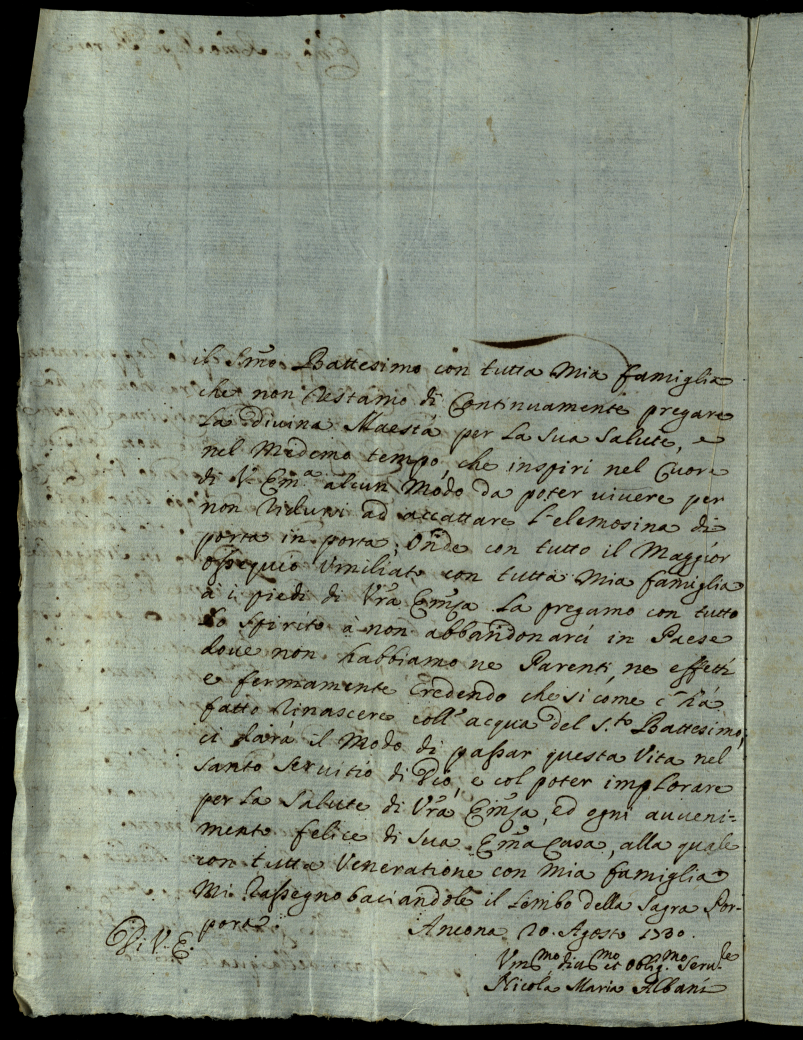 il S.mo Battesimo con tutta Mia famiglia
che non restamo di Continuamente pregare
La divina Maestà per La sua Salute, e
nel Medemo tempo, che inspiri nel Cuore
di V. Em.a alcun Modo da poter vivere per
non ridurci ad accattare L'elemosina di
porta in porta; Onde con tutto il Maggior
ossequio Umiliati con tutta Mia famiglia
à i piedi di Vra Emza La pregamo con tutto
Lo Spirito à non abbandonarci in Paese
dove non habbiamo ne Parenti, ne effetti
e fermamente Credendo che si come c'hà
fatto Rinascere coll'acqua del S.to Battesimo,
ci darà il Modo di passar questa Vita nel
Santo Servitio di Dio, e col poter implorare
per La Salute di Vra Emza, ed ogni avveni=
mento felice di Sua Ema Casa, alla quale
con tutta Veneratione con Mia famiglia
Mi Rassegno baciandole il Lembo della Sagra Por-
pora.
Ancona 20. Agosto 1730.
Di V. E.
Um.mo, div.mo et Oblig.mo Serv.re
Nicola Maria Albani